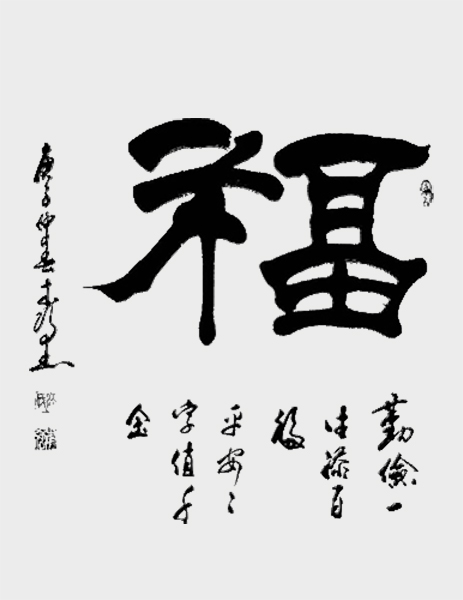 福
勤儉一
生添百
福
平安二
字值千
金
庚子仲春